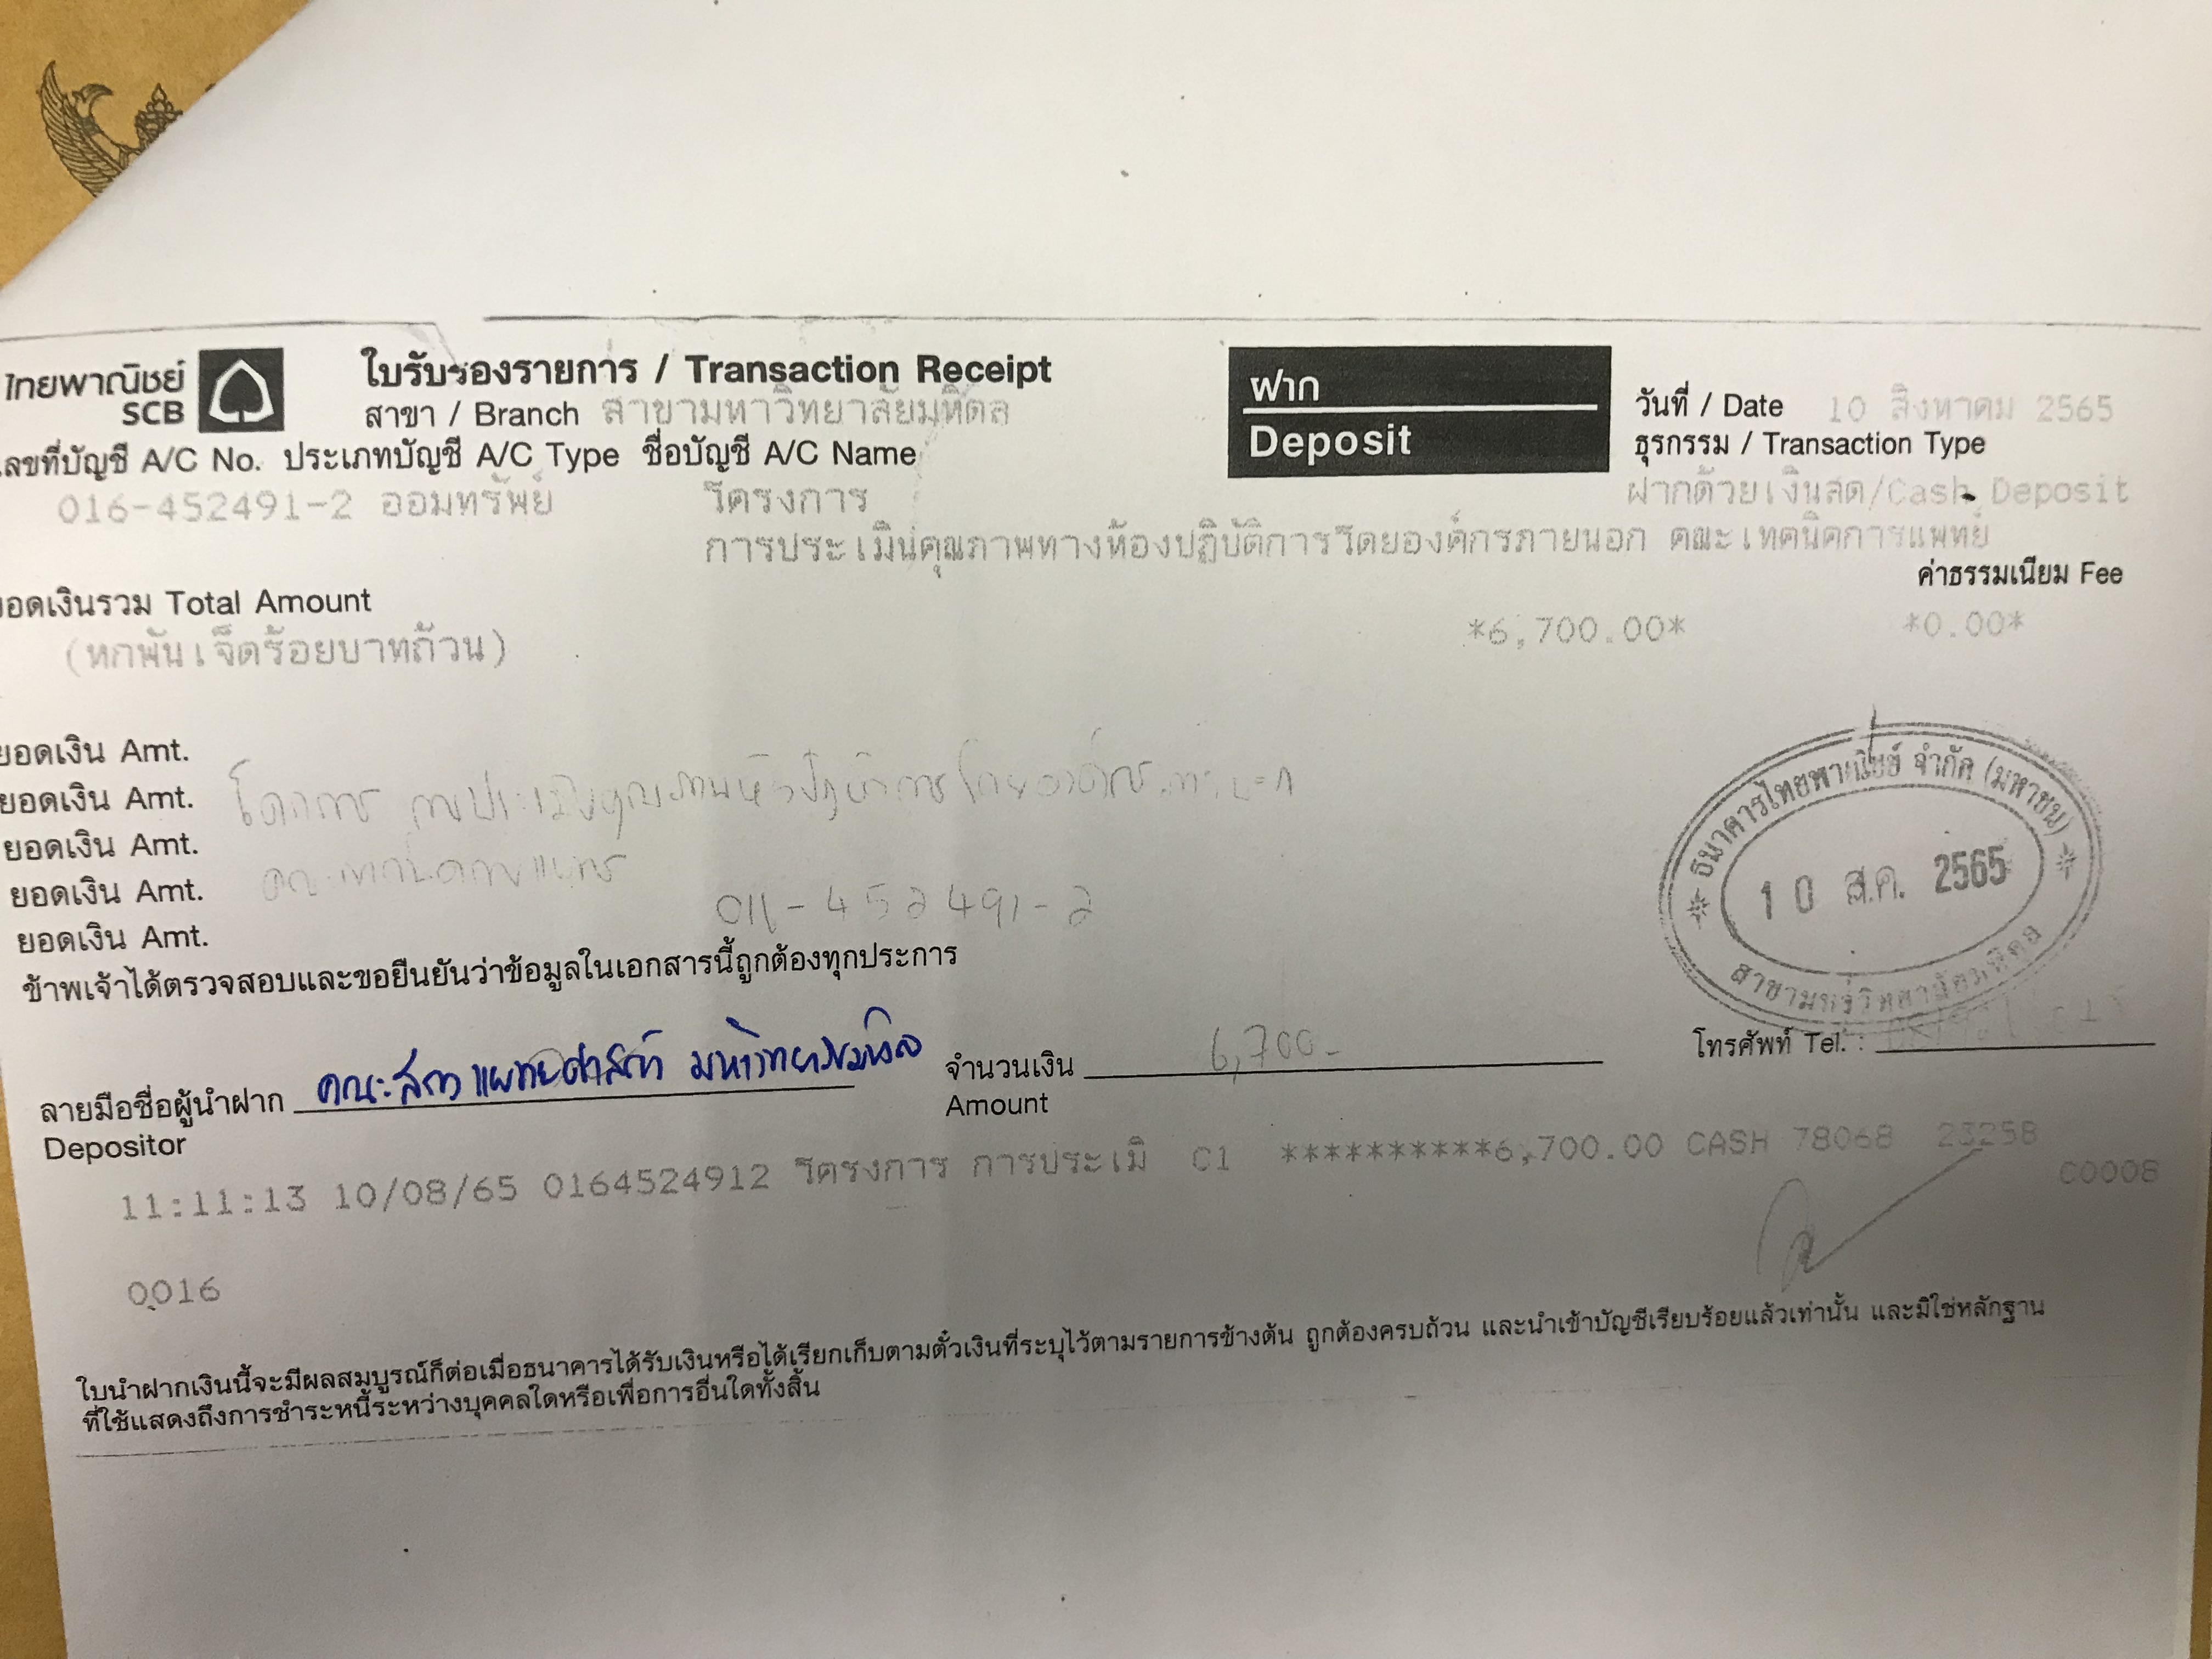 ไทยพาณิชย์
SCB
ใบรับรองรายการ / Transaction Receipt
สาขา / Branch สาขามหาวิทยาลัยมหิดล
ฝาก
Deposit
วันที่ / Date 10 สิงหาคม 2565
ธุรกรรม / Transaction Type
ฝากด้วยเงินสด/Cash Deposit
เลขที่บัญชี A/C No. ประเภทบัญชี A/C Type ชื่อบัญชี A/C Name
016-452491-2 ออมทรัพย์ โครงการ
การประเมินคุณภาพทางห้องปฏิบัติการโดยองค์กรภายนอก คณะเทคนิคการแพทย์
ค่าธรรมเนียม Fee
ยอดเงินรวม Total Amount
(หกพันเจ็ดร้อยบาทถ้วน) *6,700.00* *0.00*
ยอดเงิน Amt.
ยอดเงิน Amt. โครงการ การประเมินคุณภาพห้องปฏิบัติการโดยองค์กร
ยอดเงิน Amt. คณะเทคนิคการแพทย์
ยอดเงิน Amt. 016-452491-2
ยอดเงิน Amt.
ธนาคารไทยพาณิชย์ จำกัด (มหาชน)
10 ส.ค. 2565
สาขามหาวิทยาลัยมหิดล
ข้าพเจ้าได้ตรวจสอบและขอยืนยันว่าข้อมูลในเอกสารนี้ถูกต้องทุกประการ
ลายมือชื่อผู้นำฝาก คณะสัตวแพทยศาสตร์ มหาวิทยาลัยมหิดล จำนวนเงิน 6,700.- โทรศัพท์ Tel. :
Depositor Amount
11:11:13 10/08/65 0164524912 โครงการ การประเมิ C1 **********6,700.00 CASH 78068 23258
C0008
0016
ใบนำฝากเงินนี้จะมีผลสมบูรณ์ก็ต่อเมื่อธนาคารได้รับเงินหรือได้เรียกเก็บตามตั๋วเงินที่ระบุไว้ตามรายการข้างต้น ถูกต้องครบถ้วน และนำเข้าบัญชีเรียบร้อยแล้วเท่านั้น และมิใช่หลักฐาน
ที่ใช้แสดงถึงการชำระหนี้ระหว่างบุคคลใดหรือเพื่อการอื่นใดทั้งสิ้น